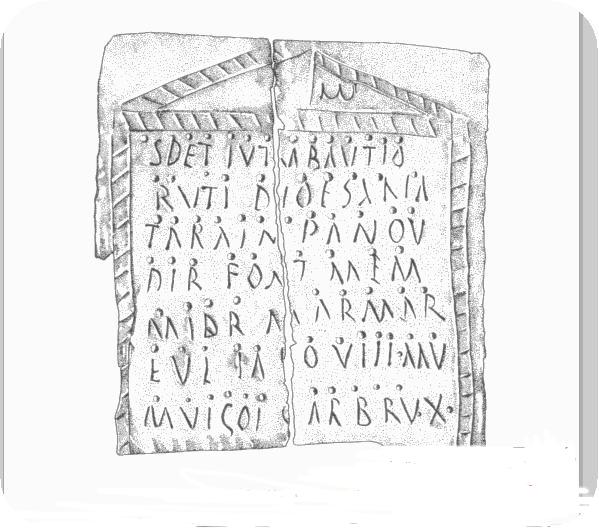 ω
SDET IVTMABAVTIO
RVTI DIOESANIA
TARAIN PANOV
DIR FONT MEM
MIDR M ARMAR
EVL IA O VIIII·MV
MVIÇOI ARBRVX·